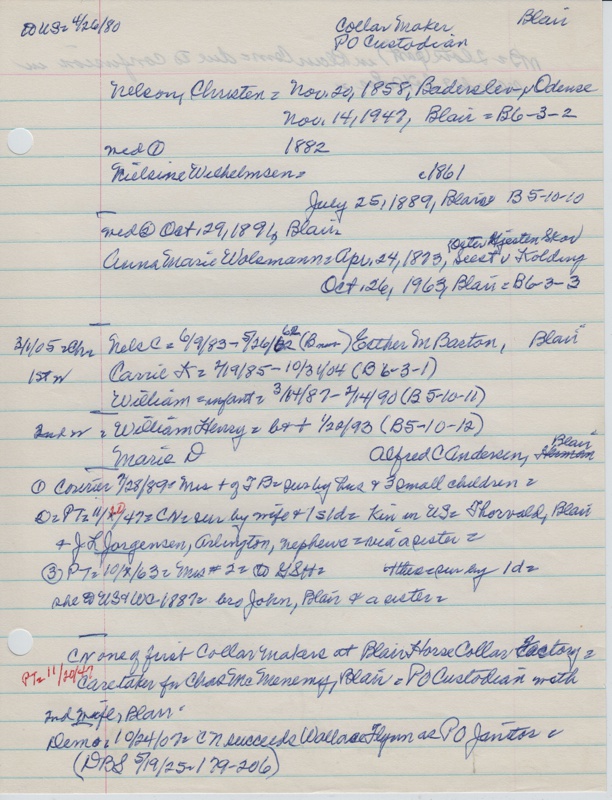 to US = 4/26/80
Collar Maker Blair
PO Custodian
Nelson, Christen = Nov. 20, 1858, Baderslev v Odense
Nov. 14, 1947, Blair = B6-3-2
med ① 1882
Nielsine Wilhelmsen = c1861
July 25, 1889, Blair = B5-10-10
med ② Oct. 29, 1891, Blair =
Anna Marie Wolsmann = Apr. 24, 1873, Seest v Kolding
Oct. 26, 1963, Blair = B6-3-3
3/1/05 = Chr Nels C = 6/9/83 - 5/26/62 (B) Esther M Barton, Blair
1st w Carrie K = 7/19/85 - 10/31/04 (B6-3-1)
William = infant = 3/14/87 - 2/14/90 (B5-10-11)
2nd w = William Henry = b & t 1/20/93 (B5-10-12)
Marie D Alfred C Andersen, Blair
① Courier 7/28/89 = Mrs + of TB = sur by hus & 3 small children =
② = PT = 11/20/47 = CN = sur by wife & 1 s 1 d = Kin in US = Thorvald, Blair
& J L Jorgensen, Arlington, nephews =
③ PT = 10/ /63 = Mrs #2 = to USA = sur by 1 d =
she to US & WC - 1887 = bro John, Blair & a sister =
CN one of first Collar Makers at Blair Horse Collar Factory =
PT = 11/20/47
Caretaker for Chas McMenemy, Blair = PO Custodian with
2nd wife, Blair =
Demo = 10/24/07 = CN succeeds Wallace Flynn as PO Janitor =
(DBS 5/19/25 = 179-206)